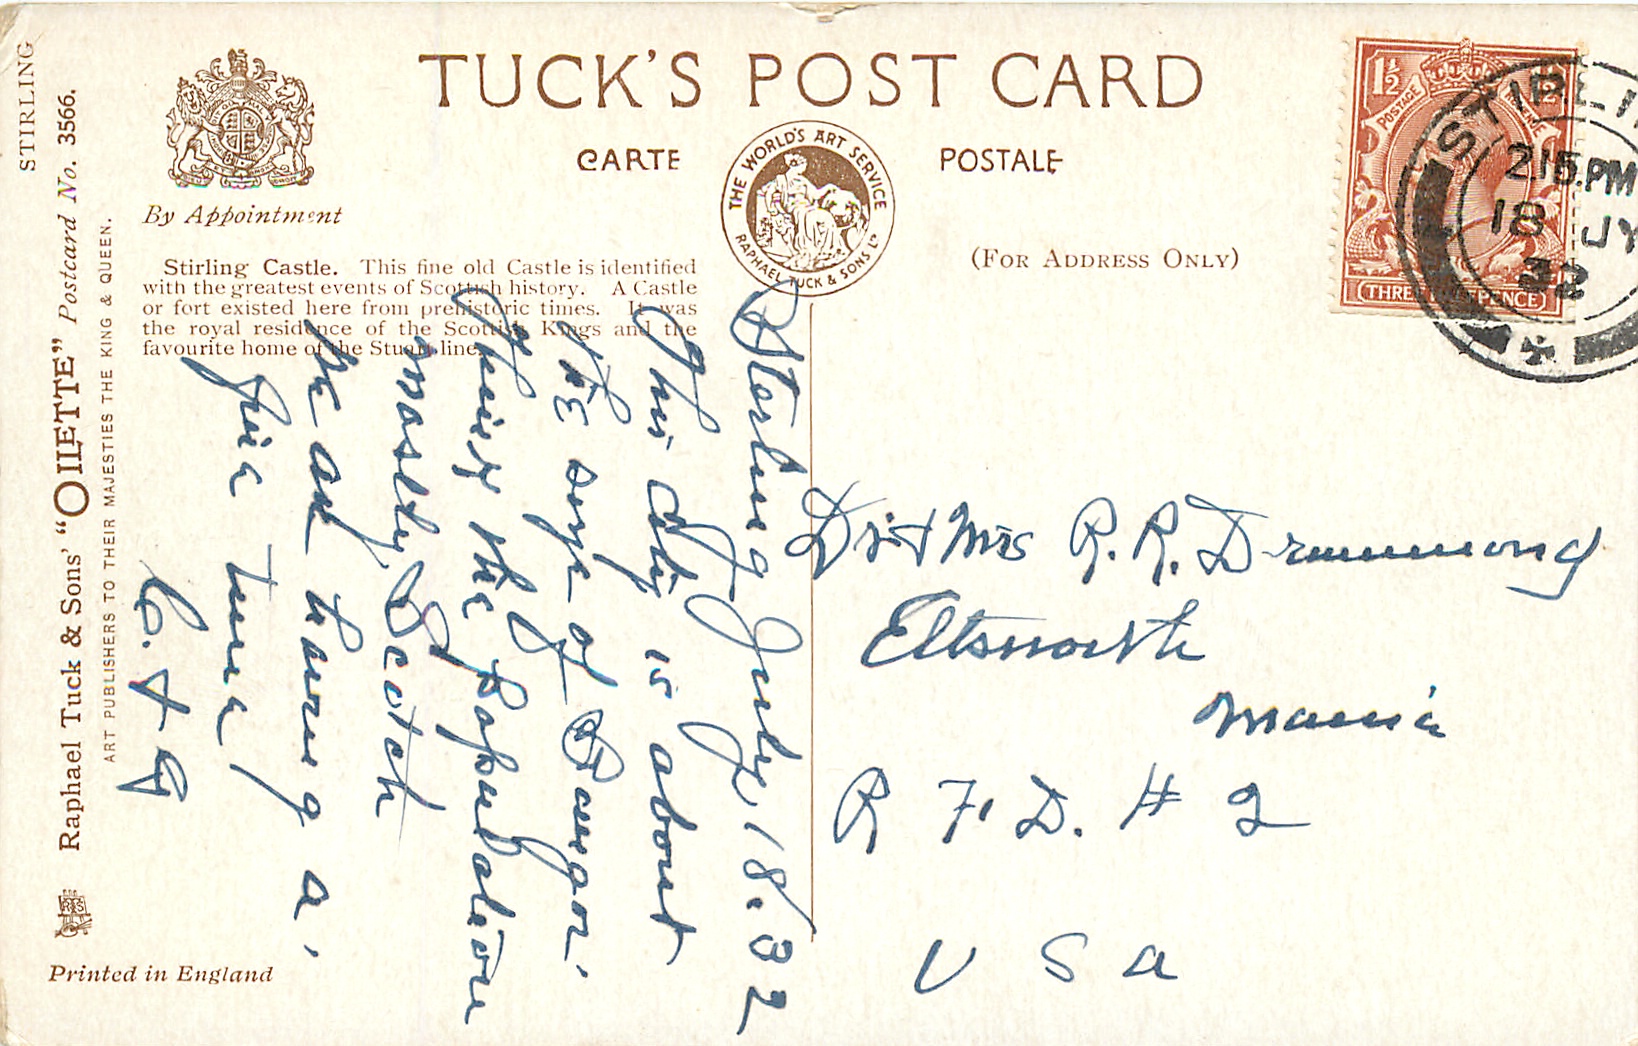 TUCK'S POST CARD
CARTE POSTALE
THE WORLD'S ART SERVICE
RAPHAEL TUCK & SONS LD
By Appointment
(FOR ADDRESS ONLY)
Stirling Castle. This fine old Castle is identified
with the greatest events of Scottish history. A Castle
or fort existed here from prehistoric times. It was
the royal residence of the Scottish Kings and the
favourite home of the Stuart line.
STIRLING
Raphael Tuck & Sons' "OILETTE" Postcard No. 3566.
ART PUBLISHERS TO THEIR MAJESTIES THE KING & QUEEN.
Printed in England
1½ 1½
POSTAGE REVENUE
THREE HALFPENCE
STIRLI
2.15.PM
18 JY
32
Sterling July, 18.32
This city is about
the size of Bangor.
Think the population
mostly Scotch
We are having a
fine time
C. & G
Dr & Mrs R. R. Drummond
Ellsworth
Maine
R F. D. # 2
U S A